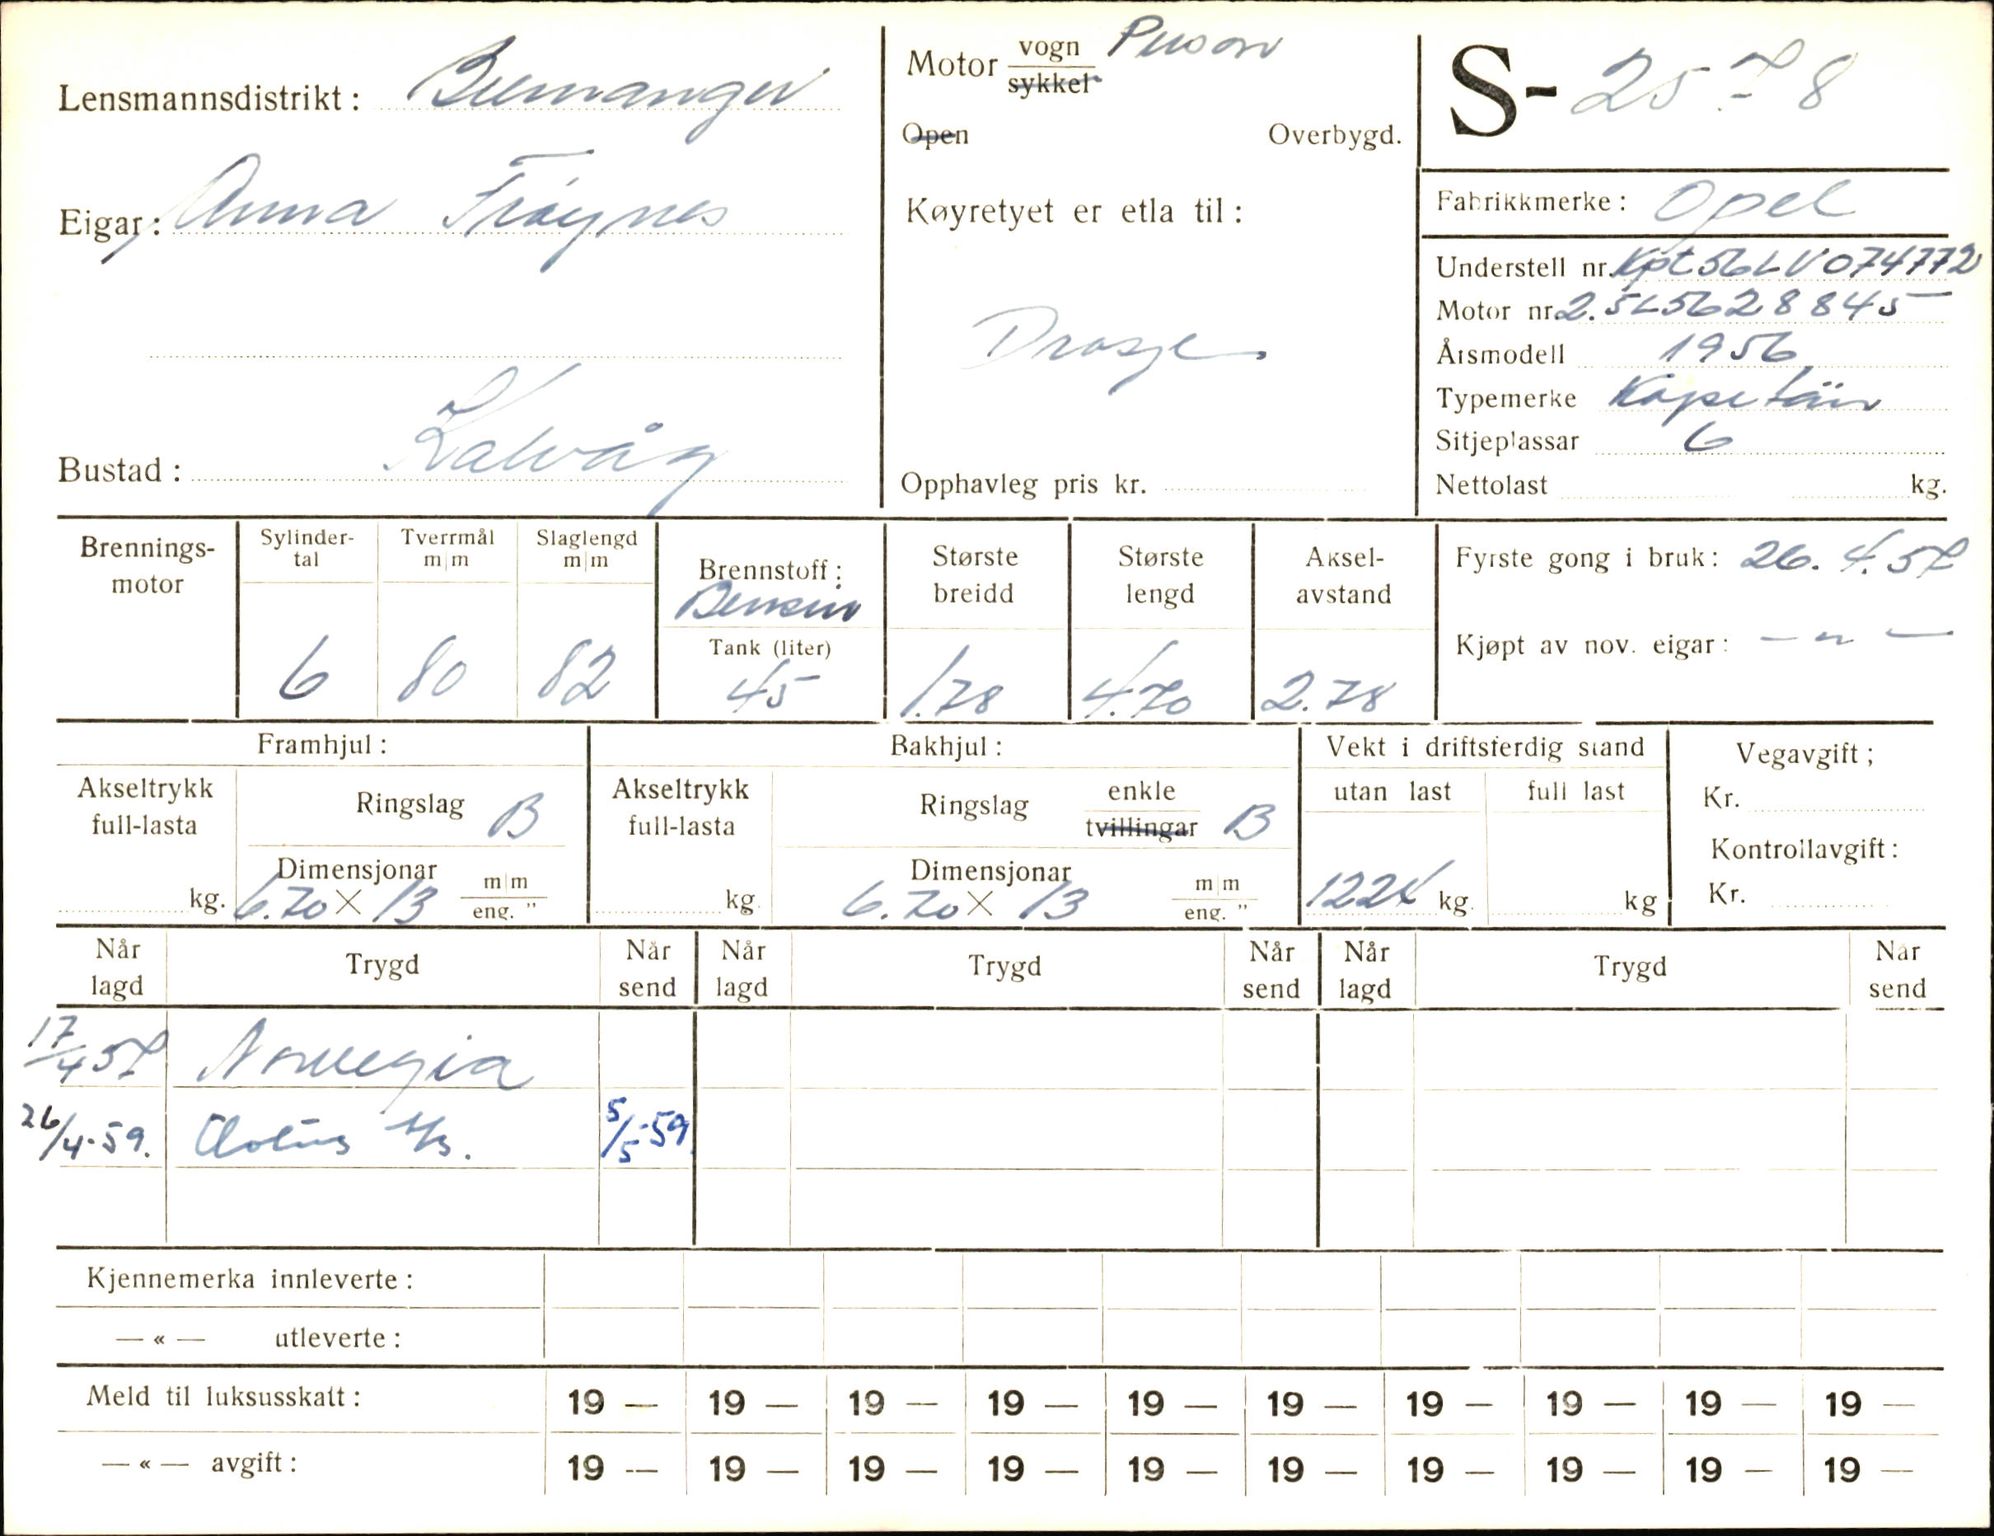 Lensmannsdistrikt: Bremanger
Eigar: Anna Frøynes
Bustad: Kalvåg
Motor vogn Person
sykkel
Open Overbygd.
Køyretyet er etla til:
Drosje
Opphavleg pris kr.
S- 2578
Fabrikkmerke: Opel
Understell nr. Kpt 56 LV 074772
Motor nr. 2.5L5628845
Årsmodell 1956
Typemerke Kapitän
Sitjeplassar 6
Nettolast kg.
Brennings-
motor
Sylinder-
tal
6
Tverrmål
m/m
80
Slaglengd
m/m
82
Brennstoff:
Bensin
Tank (liter)
45
Største
breidd
1.78
Største
lengd
4.70
Aksel-
avstand
2.78
Fyrste gong i bruk: 26.4.57
Kjøpt av nov. eigar: — " —
Framhjul:
Akseltrykk
full-lasta
kg.
Ringslag B
Dimensjonar
6.70 X 13 m/m
eng. "
Bakhjul:
Akseltrykk
full-lasta
kg.
Ringslag enkle
tvillingar B
Dimensjonar
6.70 X 13 m/m
eng. "
Vekt i driftsferdig stand
utan last full last
kg. kg
Vegavgift;
Kr.
Kontrollavgift:
Kr.
Når
lagd Trygd Når
send Når
lagd Trygd Når
send Når
lagd Trygd Når
send
17/4 57 Norvegia
26/4-59. 5/5-59.
Kjennemerka innleverte:
— « — utleverte:
Meld til luksusskatt: 19 — 19 — 19 — 19 — 19 — 19 — 19 — 19 — 19 — 19 —
— « — avgift: 19 — 19 — 19 — 19 — 19 — 19 — 19 — 19 — 19 — 19 —